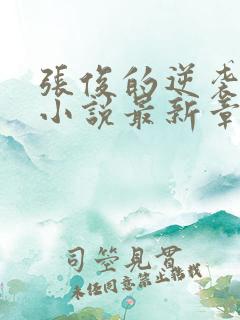 張俊的逆袭
小說最新章
司空見貫
未经同意禁止转载